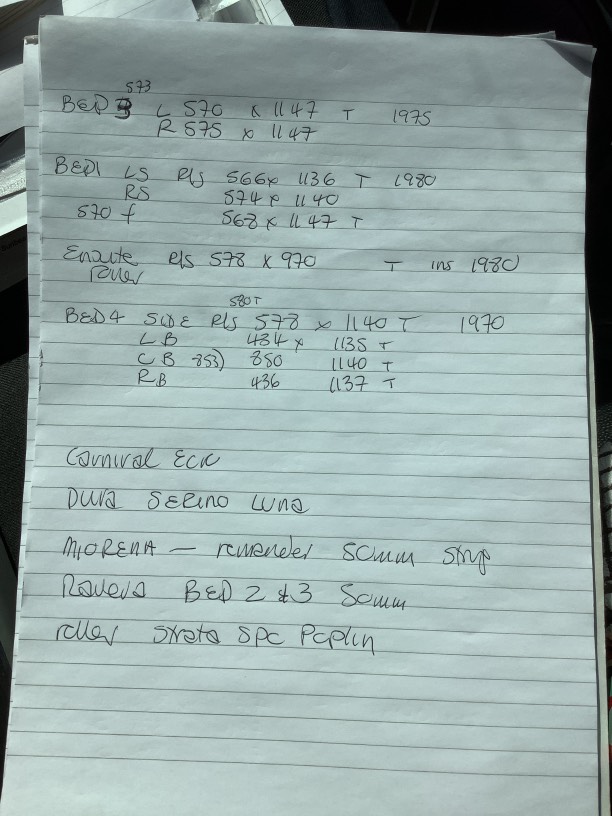 573
BED 3 L 570 x 1147 T 1975
R 575 x 1147
BED1 LS R/S 566 x 1136 T 1980
RS 574 x 1140
570 f 568 x 1147 T
Ensuite R/S 578 x 970 T ins 1980
roller
580T
BED4 SIDE R/S 578 x 1140 T 1970
LB 434 x 1135 T
CB 853) 850 1140 T
RB 436 1137 T
Carnival
Dura SERINO Luna
MORENA — remainder 50mm strip
BED 2 & 3 50mm
roller Strata SPC Poplin